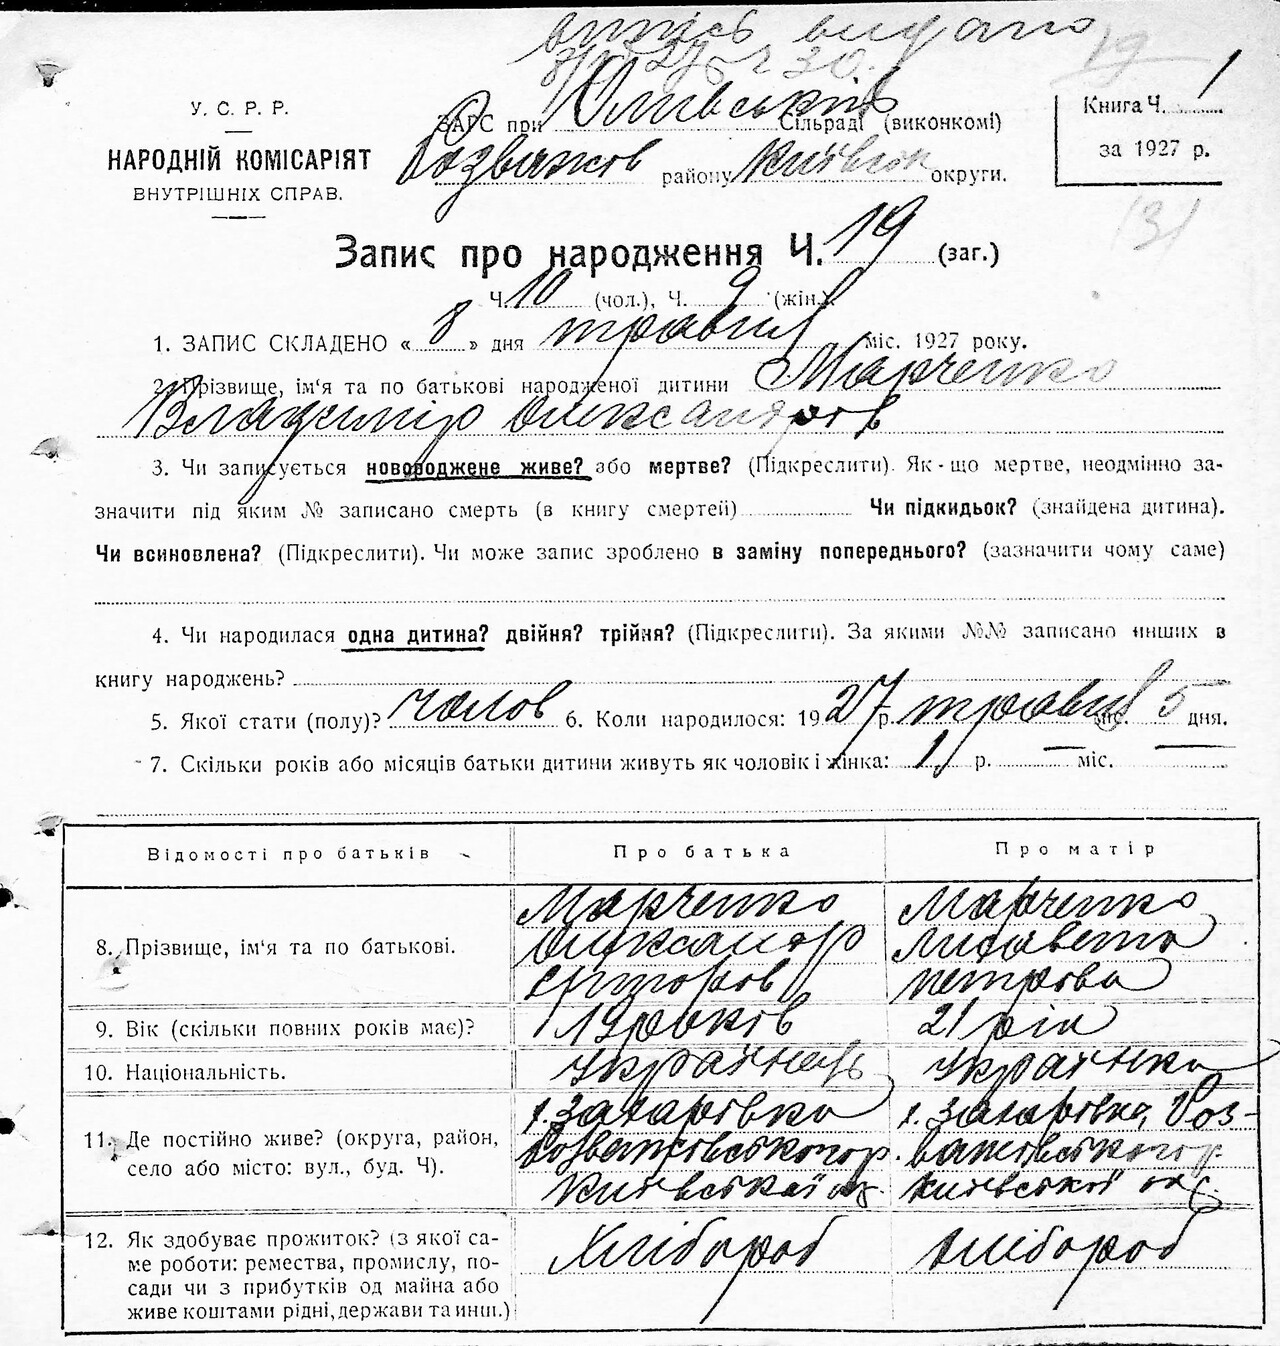 випись видано
19
У. С. Р. Р.
НАРОДНІЙ КОМІСАРІЯТ
ВНУТРІШНІХ СПРАВ.
ЗАГС при Сільраді (виконкомі)
Розважів району Київськ округи.
Книга Ч. 1
за 1927 р.
(3)
Запис про народження Ч. 19 (заг.)
Ч. 10 (чол.), Ч. 9 (жін.).
1. ЗАПИС СКЛАДЕНО « 8 » дня травня міс. 1927 року.
2. Прізвище, ім‘я та по батькові народженої дитини Марченко
Владимір Олександров
3. Чи записується новороджене живе? або мертве? (Підкреслити). Як-що мертве, неодмінно за-
значити під яким № записано смерть (в книгу смертей) Чи підкидьок? (знайдена дитина).
Чи всиновлена? (Підкреслити). Чи може запис зроблено в заміну попереднього? (зазначити чому саме)
4. Чи народилася одна дитина? двійня? трійня? (Підкреслити). За якими №№ записано инших в
книгу народжень?
5. Якої стати (полу)? чолов 6. Коли народилося: 1927 р. травня міс. 5 дня.
7. Скільки років або місяців батьки дитини живуть як чоловік і жінка: 1 р. — міс. —
Відомості про батьків
Про батька
Про матір
8. Прізвище, ім‘я та по батькові.
Марченко
Олександр
Григоров
Марченко
Лизавета
Петрова
9. Вік (скільки повних років має)?
19 років
21 рік
10. Національність.
Українець
Українка
11. Де постійно живе? (округа, район,
село або місто: вул., буд. Ч).
с. Захарівка
Розважівського р.
Київської ок.
с. Захарівка, Роз-
важівського р.
Київської ок.
12. Як здобуває прожиток? (з якої са-
ме роботи: ремества, промислу, по-
сади чи з прибутків од майна або
живе коштами рідні, держави та инш.)
Хлібороб
Хлібороб